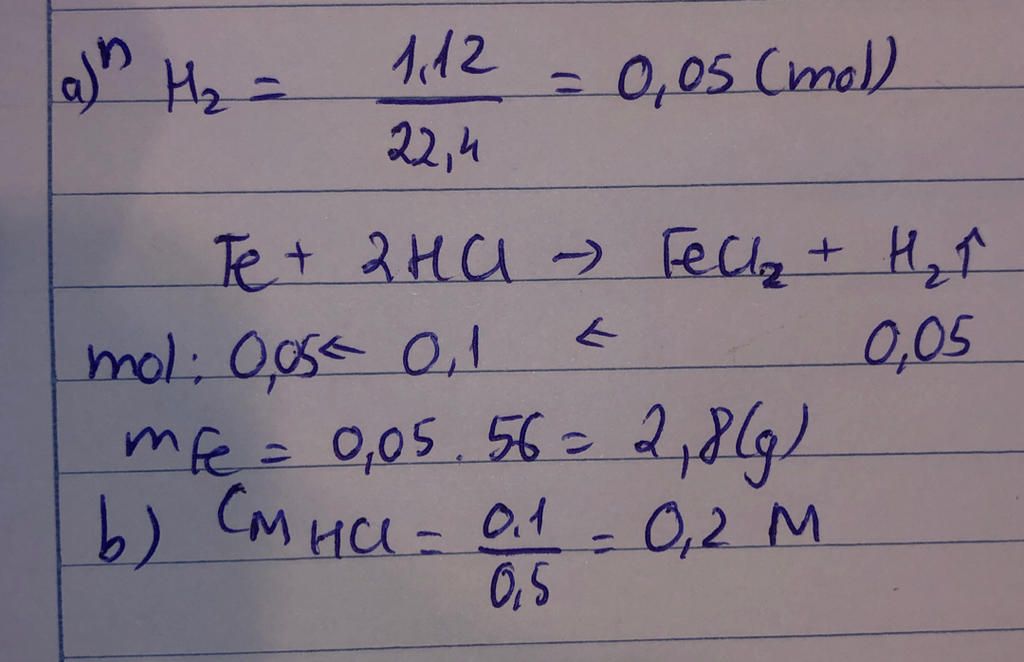 a) n H₂ = 1,12 / 22,4 = 0,05 (mol)
Fe + 2HCl → FeCl₂ + H₂↑
mol: 0,05 ← 0,1 ← 0,05
mFe = 0,05 . 56 = 2,8(g)
b) CM HCl = 0.1 / 0,5 = 0,2 M